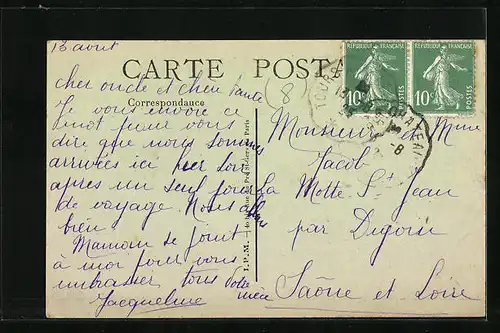 13 août
CARTE POSTALE
Correspondance
cher oncle et chère tante
Je vous envoie ce
mot pour vous
dire que nous sommes
arrivées ici hier soir
après un seul jour
de voyage. Nous allons
bien
Maman se joint
à moi pour vous
embrasser tous
Votre nièce
Jacqueline
(8)
RÉPUBLIQUE FRANÇAISE
10c
POSTES
RÉPUBLIQUE FRANÇAISE
10c
POSTES
Monsieur et Mme
Jacob
La Motte St Jean
par Digoin
Saône et Loire